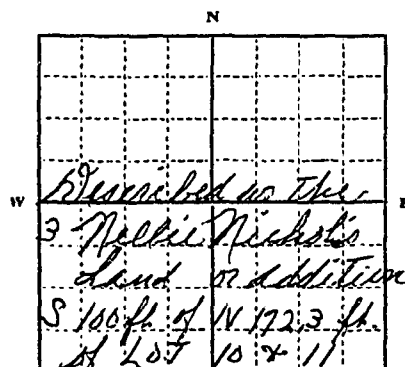 N
Described as the
W E
3 Nellie Nichol's
Land or addition
S 100 ft. of W 172.3 ft.
of LOT 10 & 11